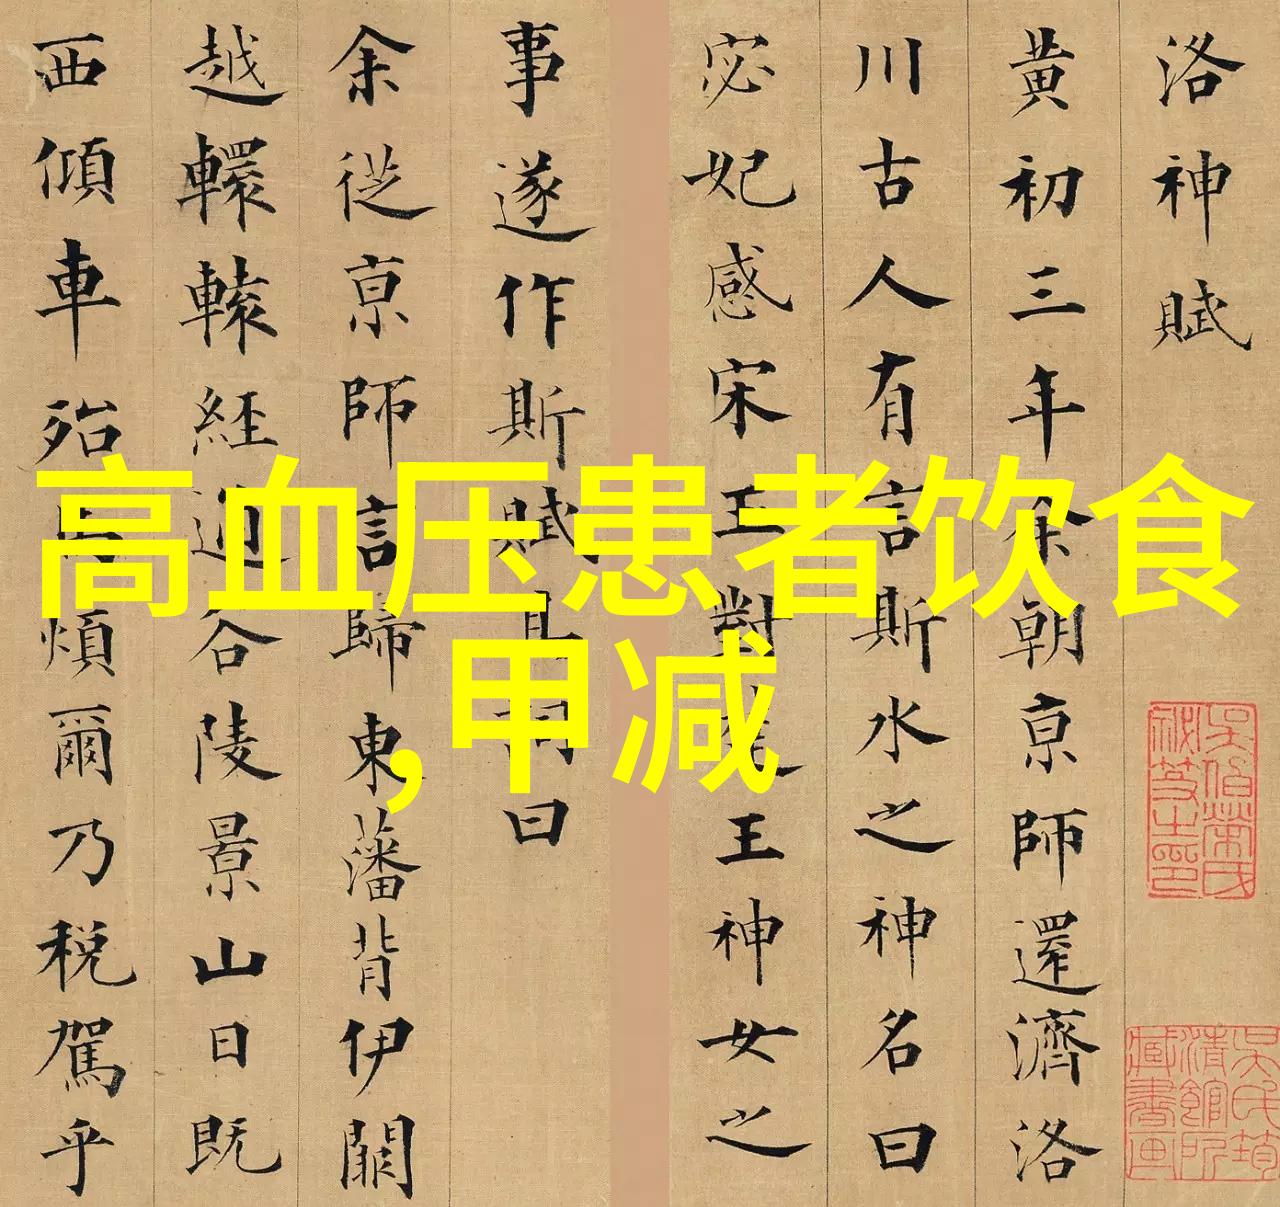 洛神賦
黄初三年余朝京師還濟洛
川古人有言斯水之神名曰
宓妃感宋玉對楚王神女之
事遂作斯賦其詞曰
余從京師言歸東藩背伊闕
越轘轅經通谷陵景山日既
西傾車殆馬煩爾乃稅駕乎
高血压患者饮食
,甲减